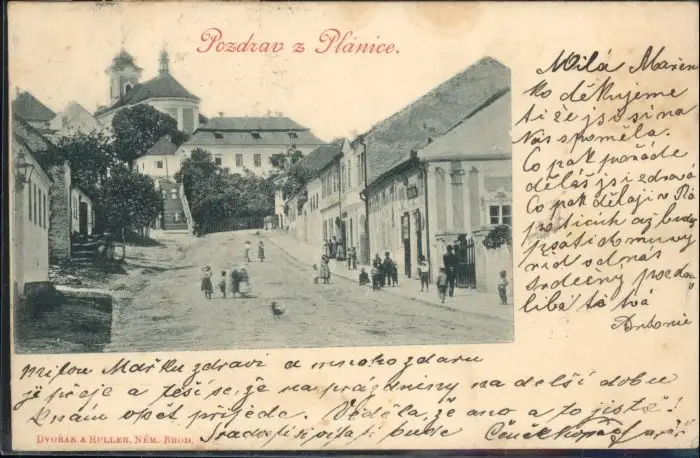 Pozdrav z Plánice.
Milá Mařen
ko děkujeme
ti že jsi si na
Nás spoměla.
Co pak pořáde
děláš jsi zdravá
Co pak dělají v
až budeš
psáti domuvy
od nás
srdečný pozdra
líbá tě tvá
Antonie
milou Mařku zdraví a mnoho zdaru
jí přeje a těší se, že na prázdniny na delší dobu
k nám opět přijede. Věděla, že ano a to jistě!
bude Čeněk
DVOŘÁK & RULLER, NĚM. BROD.